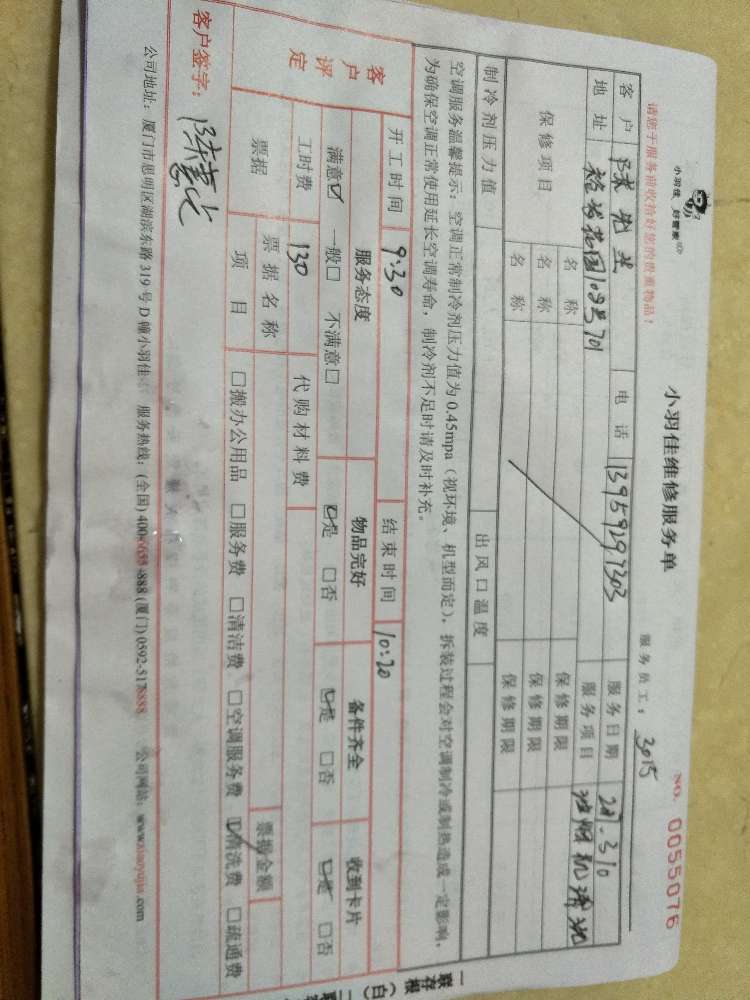 小羽佳 好管家
小羽佳维修服务单
NO. 0055076
请您于服务前收拾好您的贵重物品!
服务员工: 3015
客户 陈先生 电话 13959297303 服务日期
地址 花园102号701 服务项目 油烟机清洗
保修项目 名称 保修期限
名称 保修期限
名称 保修期限
制冷剂压力值 出风口温度
空调服务温馨提示: 空调正常制冷剂压力值为 0.45mpa (视环境、机型而定), 拆装过程会对空调制冷或制热造成一定影响,
为确保空调正常使用延长空调寿命, 制冷剂不足时请及时补充。
开工时间 9:30 结束时间 10:20
客户评定 服务态度 物品完好 备件齐全 收到卡片
满意☑ 一般□ 不满意□ ☑是 □否 ☑是 □否 ☑是 □否
工时费 130 代购材料费
票据 票据名称 票据金额
项目 □搬办公用品 □服务费 □清洁费 □空调服务费 ☑清洗费 □疏通费
客户签字:
公司地址: 厦门市思明区湖滨东路 319 号 D 幢小羽佳 服务热线: (全国) 400 (厦门) 0592-5178888 公司网站: www.xiaoyujia.com